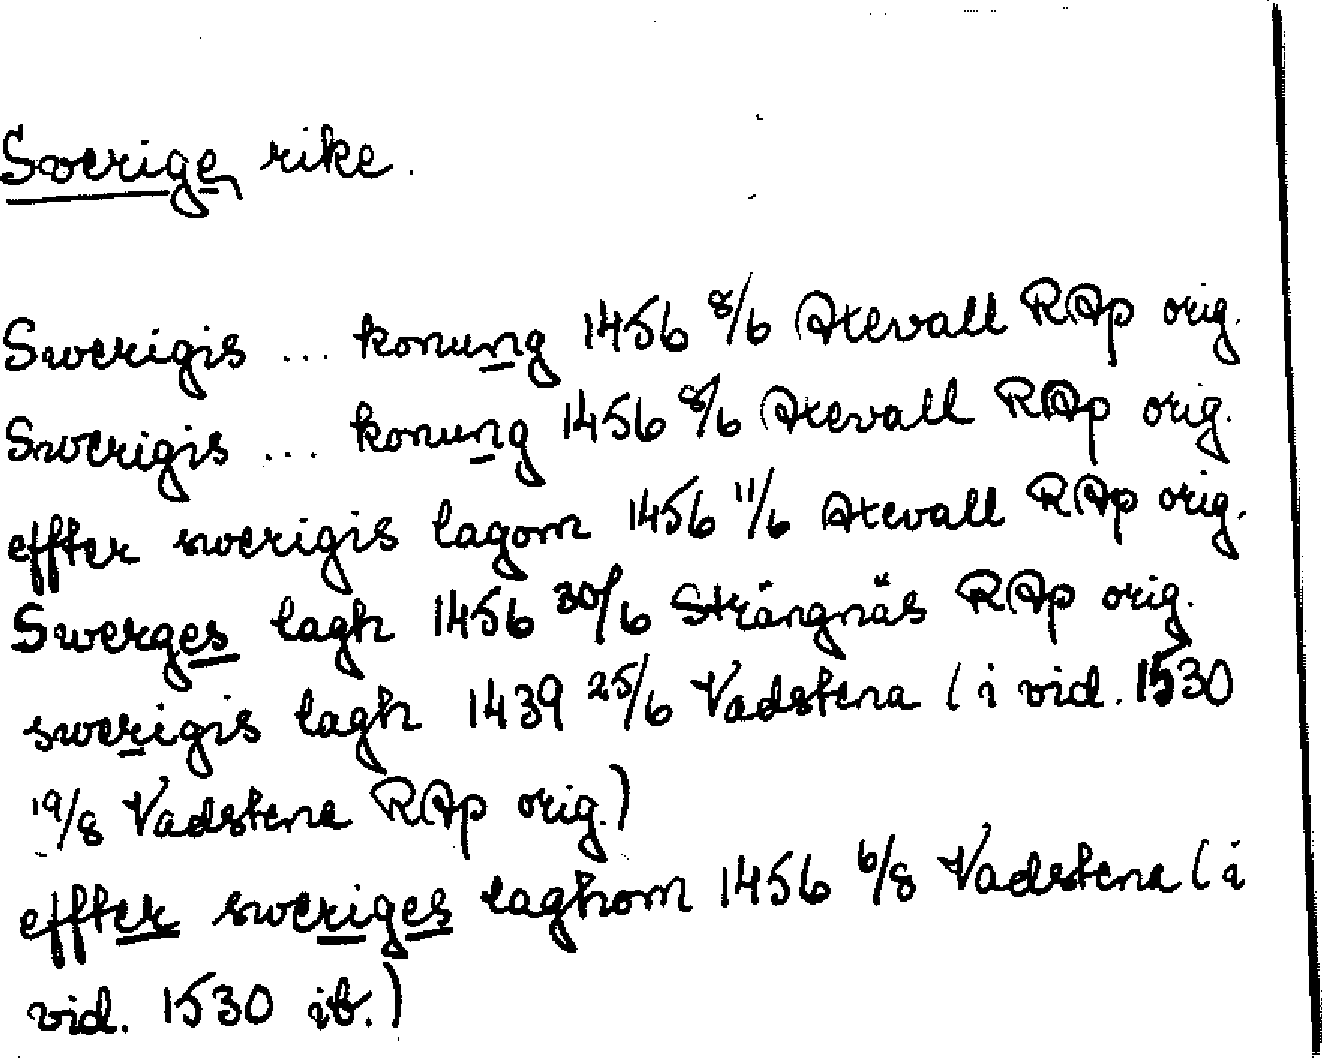 Sverige, rike.
Swerigis ... konung 1456 8/6 Axevall RAp orig.
Swerigis ... konung 1456 8/6 Axevall RAp orig.
effter swerigis lagom 1456 11/6 Axevall RAp orig.
Swerges lagh 1456 30/6 Strängnäs RAp orig.
swerigis lagh 1439 25/6 Vadstena (i vid. 1530
19/8 Vadstena RAp orig.)
effter sweriges laghom 1456 6/8 Vadstena (i
vid. 1530 ib.)